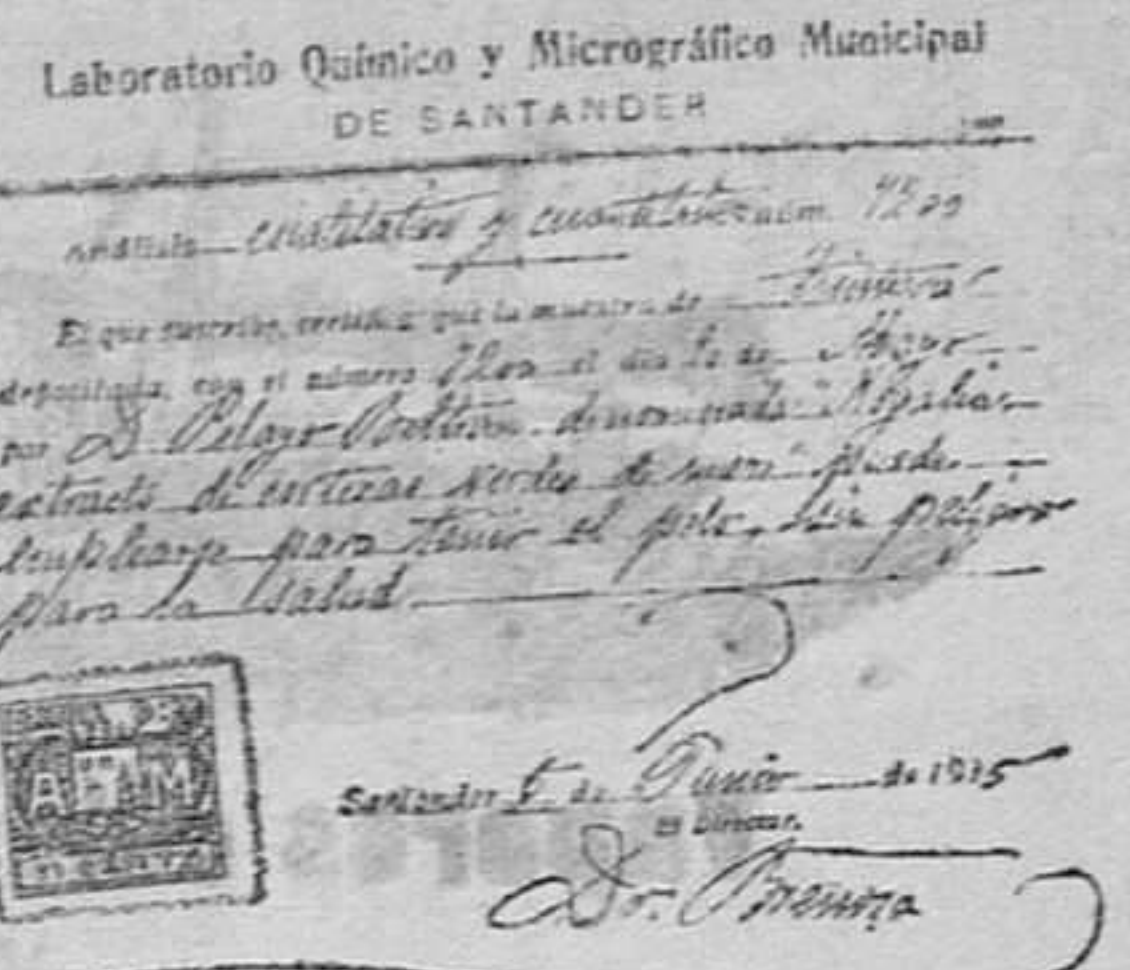 Laboratorio Químico y Micrográfico Municipal
DE SANTANDER
Análisis cualitativo y cuantitativo núm.
El que suscribe, certifica que la muestra de
depositada, con el número el día de Mayo
por D. Pelayo denominada
extracto de cortezas verdes de puede
emplearse para teñir el pelo, sin peligro
para la salud
A M
Santander 5 de Junio de 1915
El Director,
Dr.